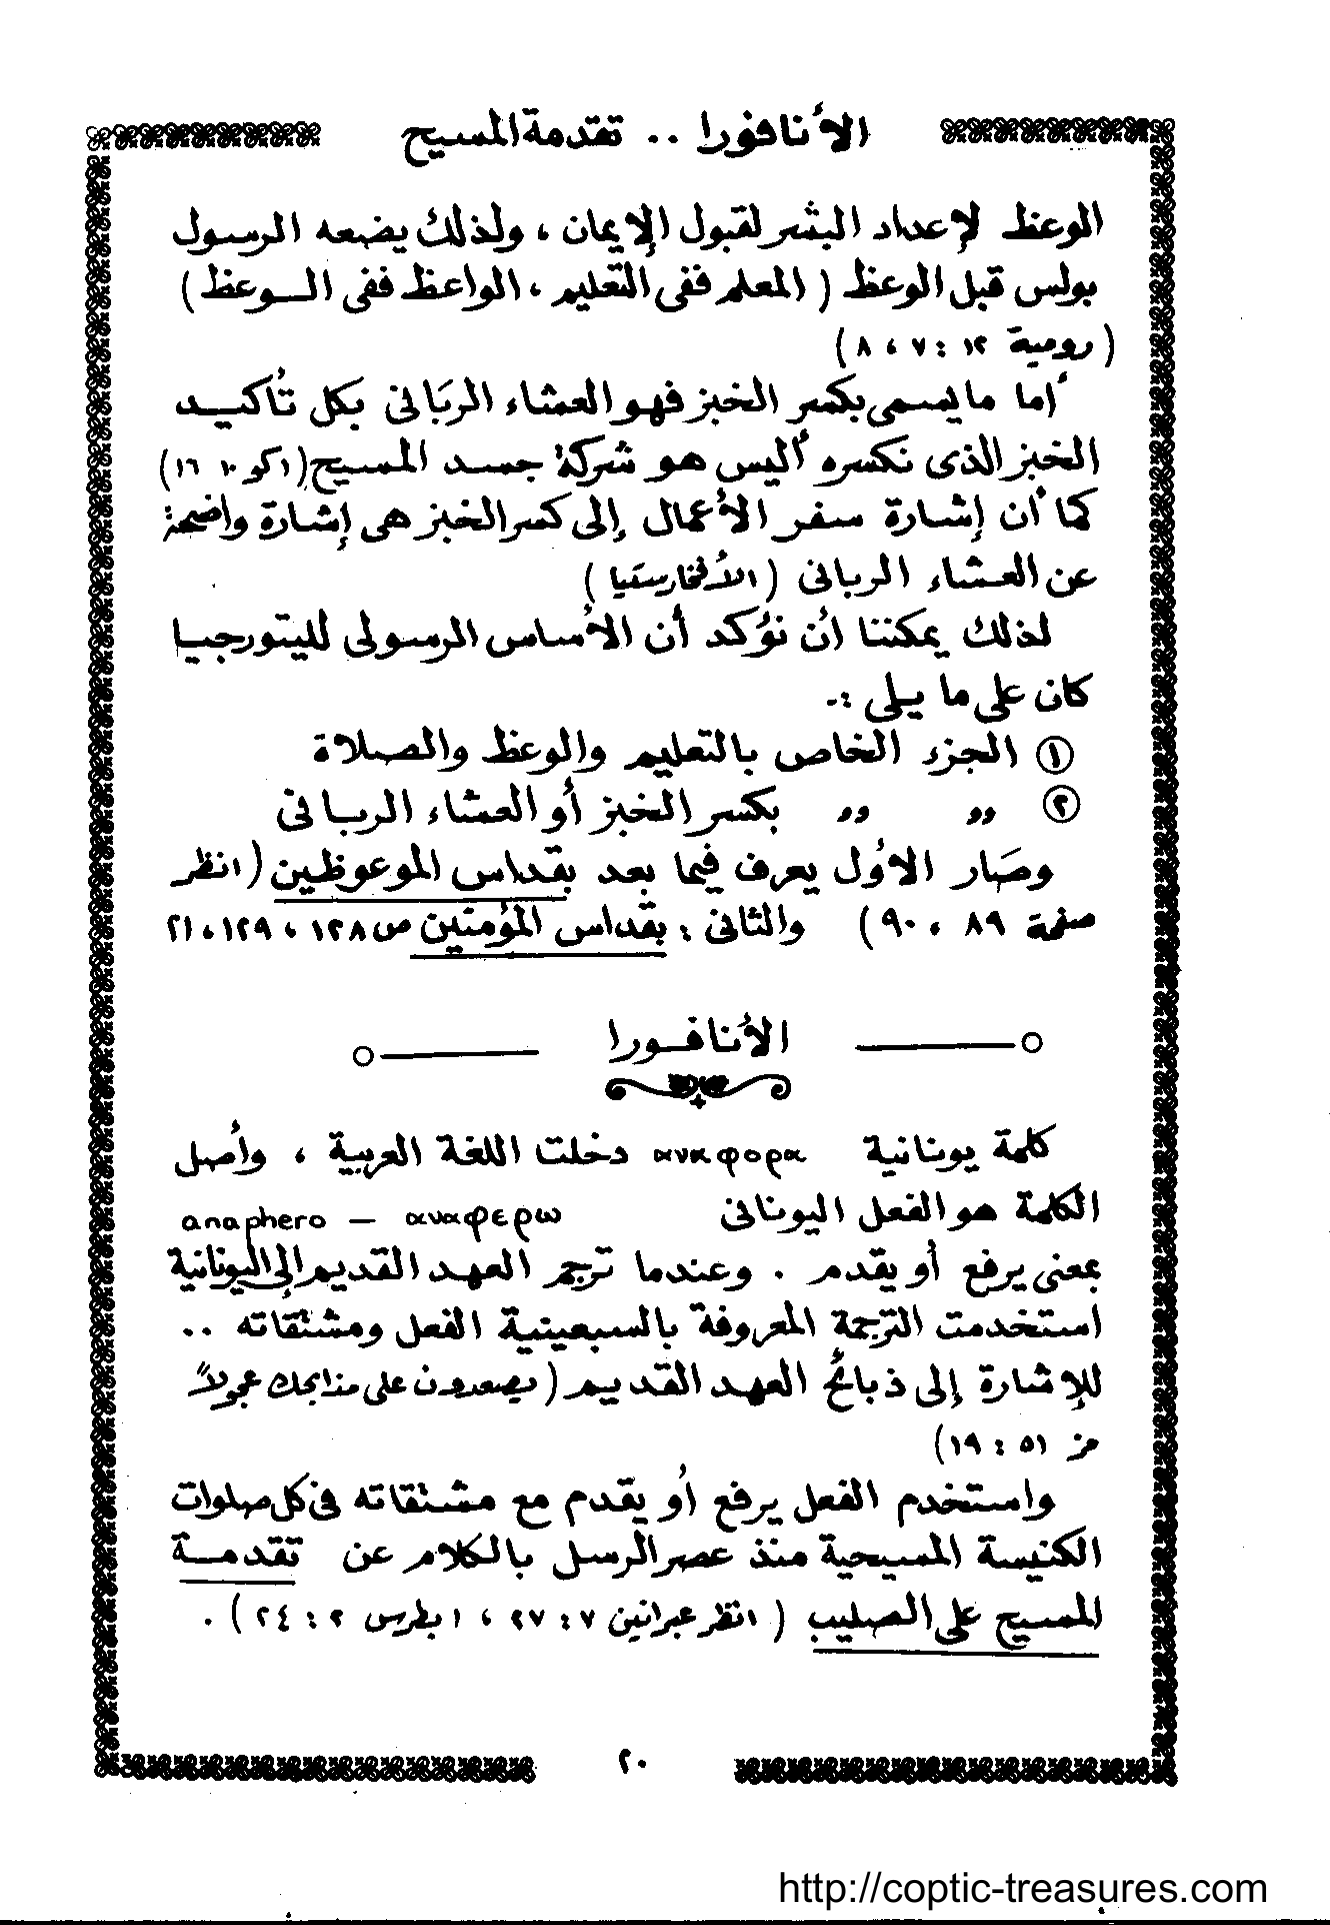 الأنافورا .. تقدمة المسيح
الوعظ لإعداد البشر لقبول الإيمان ، ولذلك يضعه الرسول
بولس قبل الوعظ ( المعلم ففى التعليم ، الواعظ ففى الوعظ )
( رومية ١٢ : ٧ ، ٨ )
أما ما يسمى بكسر الخبز فهو العشاء الربانى بكل تأكيد
الخبز الذى نكسره أليس هو شركة جسد المسيح (١كو ١٠ ١٦)
كما أن إشارة سفر الأعمال إلى كسر الخبز هى إشارة واضحة
عن العشاء الربانى ( الأفخارستيا )
لذلك يمكننا أن نؤكد أن الأساس الرسولى لليتورجيا
كان على ما يلى :-
① الجزء الخاص بالتعليم والوعظ والصلاة
② ,, ,, بكسر الخبز أو العشاء الربانى
وصار الأول يعرف فيما بعد بقداس الموعوظين ( انظر
صفحة ٨٩ ، ٩٠ ) والثانى : بقداس المؤمنين ص ١٢٨ ، ١٢٩ ، ٢١
الأنافورا
كلمة يونانية αναφορα دخلت اللغة العربية ، وأصل
الكلمة هو الفعل اليونانى anaphero — αναφερω
بمعنى يرفع أو يقدم . وعندما ترجم العهد القديم إلى اليونانية
استخدمت الترجمة المعروفة بالسبعينية الفعل ومشتقاته ..
للإشارة إلى ذبائح العهد القديم ( يصعدون على مذابحك عجولاً
مز ٥١ : ١٩ )
واستخدم الفعل يرفع أو يقدم مع مشتقاته فى كل صلوات
الكنيسة المسيحية منذ عصر الرسل بالكلام عن تقدمة
المسيح على الصليب ( انظر عبرانين ٧ : ٢٧ ، ١ بطرس ٢ : ٢٤ ) .
٢٠
http://coptic-treasures.com